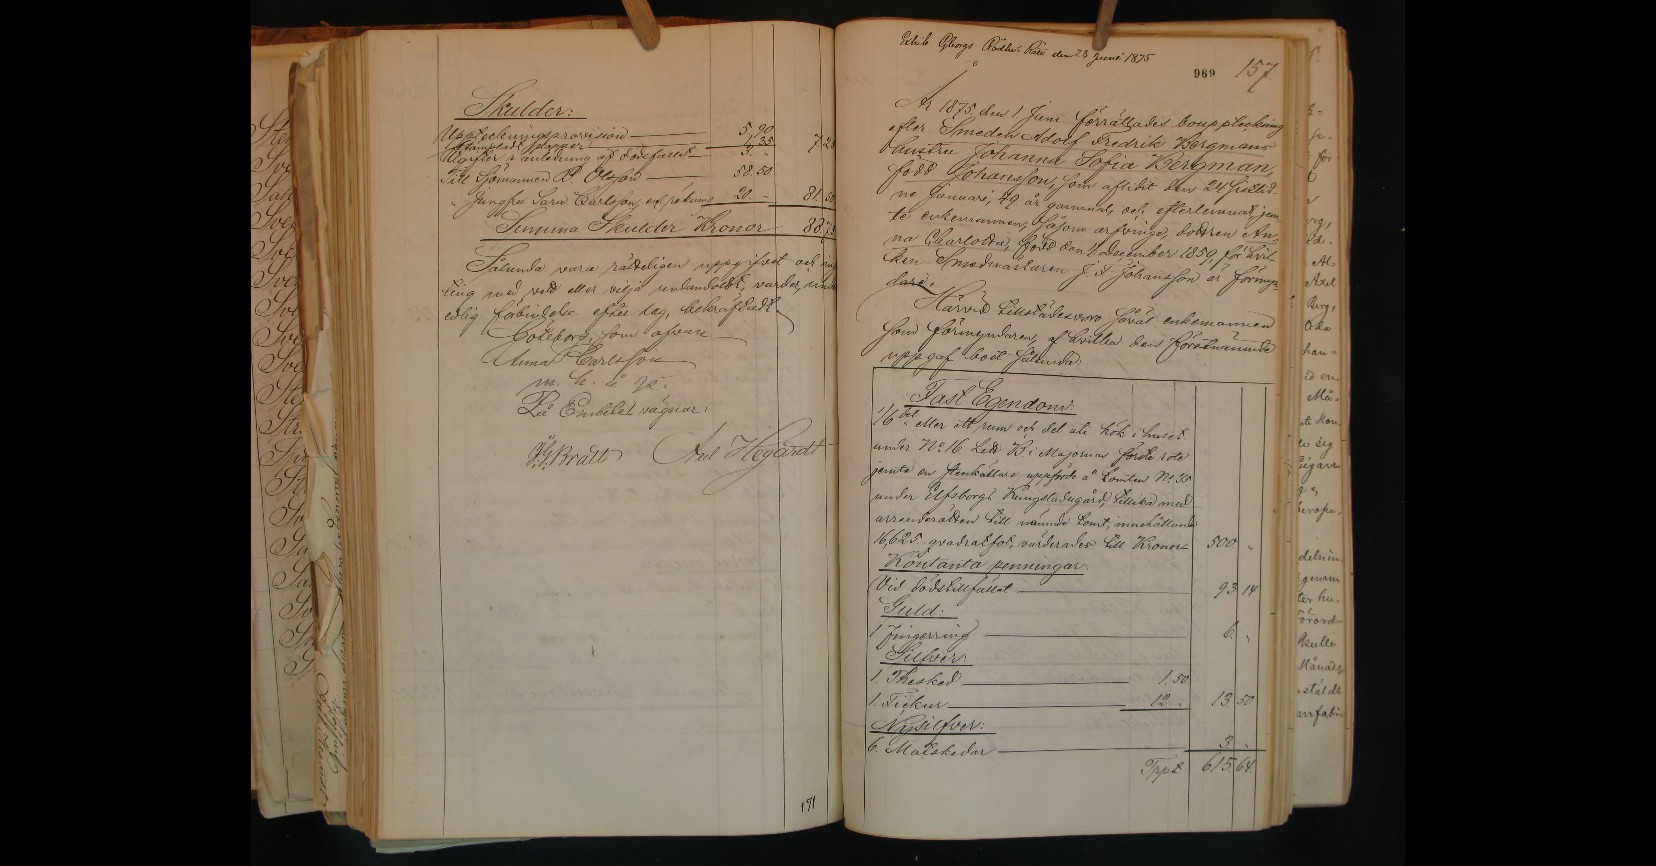 Skulder:
Uppteckningsprovision 5,90
Stämpladt papper 1,35 7 2
Utgifter i anledning af dödsfallet 3.-
Till Sjömannen B. Olsson 58.50
" Jungfru Sara Carlsson, 20.- 81.50
Summa Skulder Kronor 88.7
Sålunda vara rätteligen uppgifvet och
ting med vett eller vilja undanhållet, varder, under
edlig förbindelse efter lag, bekräftadt
Göteborg, som ofvan
Anna Carlsson
m. h. å p.
På Embetets vägnar:
J.G. Bratt Axel Hegardt
171
Exhib. Gborgs Rådhus Rätt den 28 Juni 1875
969 157
År 1875 den 1 Juni förrättades bouppteckning
efter Smeden Adolf Fredrik Bergmans
hustru Johanna Sofia Bergman,
född Johansson, som aflidit den 24 sistlid-
ne Januari, 49 år gammal, och efterlemnat, jem-
te enkemannen, såsom arfvinge, dottren An-
na Charlotta, född den 4 December 1859, för hvil-
ken Smedmästaren J. F. Johansson är förmyn-
dare.
Härvid tillstädesvoro såväl enkemannen
som förmyndaren, af hvilka den förstnämnde
uppgaf boet sålunda:
Fast Egendom:
1/6 del eller ett rum och del uti kök i huset
under No 16 Litt B i Majornas förste rote
jemte en stenkällare uppförde å tomten No 35
under Elfsborgs Kungsladugård, tillika med
arrenderätten till nämnde tomt, innehållande
16,625 qvadratfot, värderades till Kronor 500 "
Kontanta penningar:
Vid dödstillfället 93 14
Guld:
1 Fingerring 6 "
Silfver:
1. Thesked 1.50
1. Fickur 12.- 13 50
Nysilfver:
6. Matskedar 3. -
Trpt 615 64